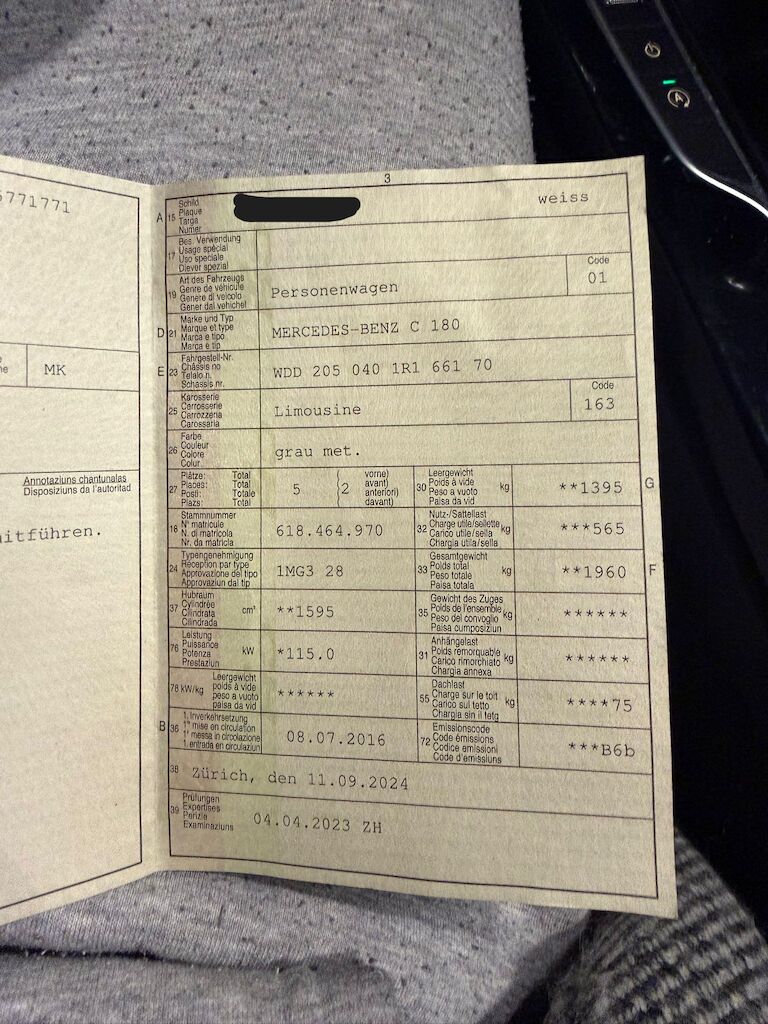 6771771
MK
Annotaziuns chantunalas
Disposiziuns da l'autoritad
itführen.
3
A 15 Schild
Plaque
Targa
Numer
weiss
17 Bes. Verwendung
Usage spécial
Uso speciale
Diever spezial
19 Art des Fahrzeugs
Genre de véhicule
Genere di veicolo
Gener dal vehichel
Personenwagen
Code
01
D 21 Marke und Typ
Marque et type
Marca e tipo
Marca e tip
MERCEDES-BENZ C 180
E 23 Fahrgestell-Nr.
Châssis no
Telaio n.
Schassis nr.
WDD 205 040 1R1 661 70
25 Karosserie
Carrosserie
Carrozzeria
Carossaria
Limousine
Code
163
26 Farbe
Couleur
Colore
Colur
grau met.
27 Plätze: Total
Places: Total
Posti: Totale
Plazs: Total
5
(2 vorne)
avant)
anteriori)
davant)
30 Leergewicht
Poids à vide
Peso a vuoto
Paisa da vid
kg
**1395
G
18 Stammnummer
N° matricule
N. di matricola
Nr. da matricla
618.464.970
32 Nutz-/Sattellast
Charge utile/sellette
Carico utile/sella
Chargia utila/sella
kg
***565
24 Typengenehmigung
Réception par type
Approvazione del tipo
Approvaziun dal tip
1MG3 28
33 Gesamtgewicht
Poids total
Peso totale
Paisa totala
kg
**1960
F
37 Hubraum
Cylindrée
Cilindrata
Cilindrada
cm³
**1595
35 Gewicht des Zuges
Poids de l'ensemble
Peso del convoglio
Paisa cumposiziun
kg
******
76 Leistung
Puissance
Potenza
Prestaziun
kW
*115.0
31 Anhängelast
Poids remorquable
Carico rimorchiato
Chargia annexa
kg
******
78 kW/kg
Leergewicht
poids à vide
peso a vuoto
paisa da vid
******
55 Dachlast
Charge sur le toit
Carico sul tetto
Chargia sin il tetg
kg
****75
B 36 1. Inverkehrsetzung
1re mise en circulation
1a messa in circolazione
1. entrada en circulaziun
08.07.2016
72 Emissionscode
Code émissions
Codice emissioni
Code d'emissiuns
***B6b
38 Zürich, den 11.09.2024
39 Prüfungen
Expertises
Perizie
Examinaziuns
04.04.2023 ZH